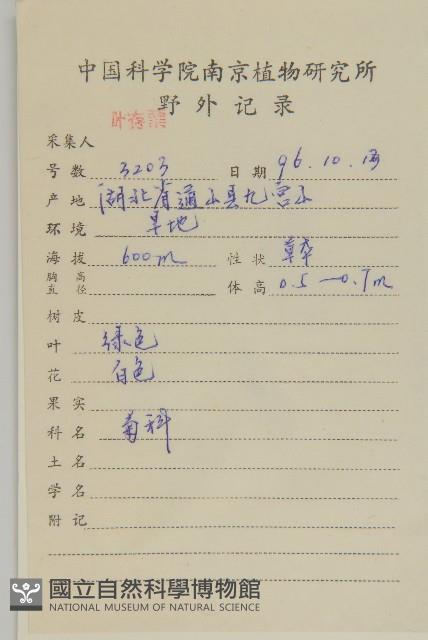 中国科学院南京植物研究所
野外记录
采集人
号数 3203 日期 96.10.
产地 湖北省通山县九宫山
环境 草地
海拔 600m 性状 草本
胸高直径 体高 0.5—0.7m
树皮
叶 绿色
花 白色
果实
科名 菊科
土名
学名
附记
國立自然科學博物館
NATIONAL MUSEUM OF NATURAL SCIENCE